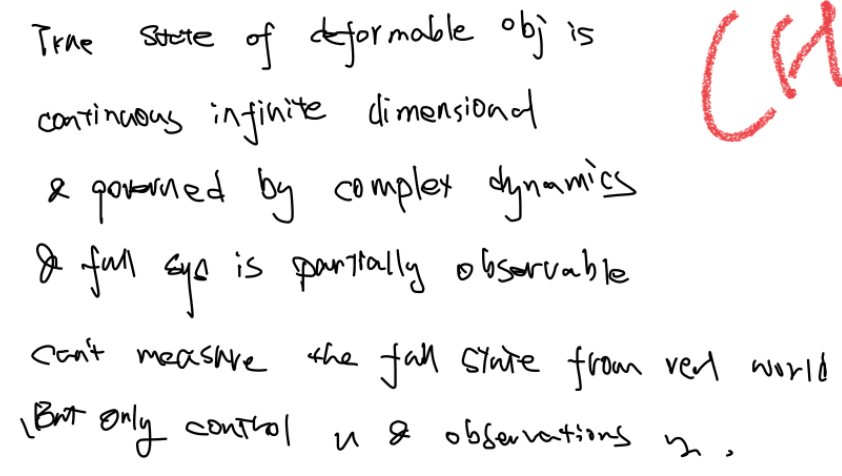 True state of deformable obj is
continuous infinite dimensional
& governed by complex dynamics
& full sys is partially observable
can't measure the full state from real world
But only control u & observations y.